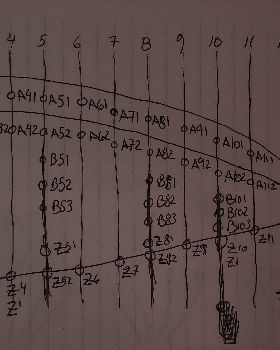 4 5 6 7 8 9 10 11
A41 A51 A61 A71 A81 A91 A101 A111
A42 A52 A62 A72 A82 A92 A102 A112
B51 B81 B101
B52 B82 B102
B53 B83 B103
Z51 Z81 Z9 Z10 Z11
Z4 Z52 Z6 Z7 Z82 Z1
Z1